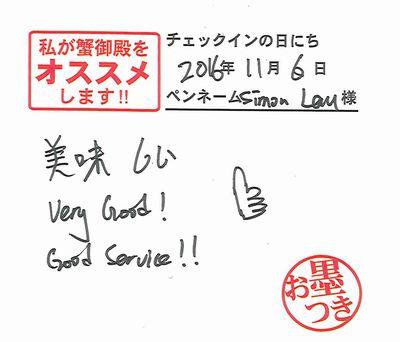 私が蟹御殿を
オススメ
します!!
チェックインの日にち
2016年 11月 6日
ペンネーム Simon Lau 様
美味しい
Very Good!
Good Service!!
お墨
つき